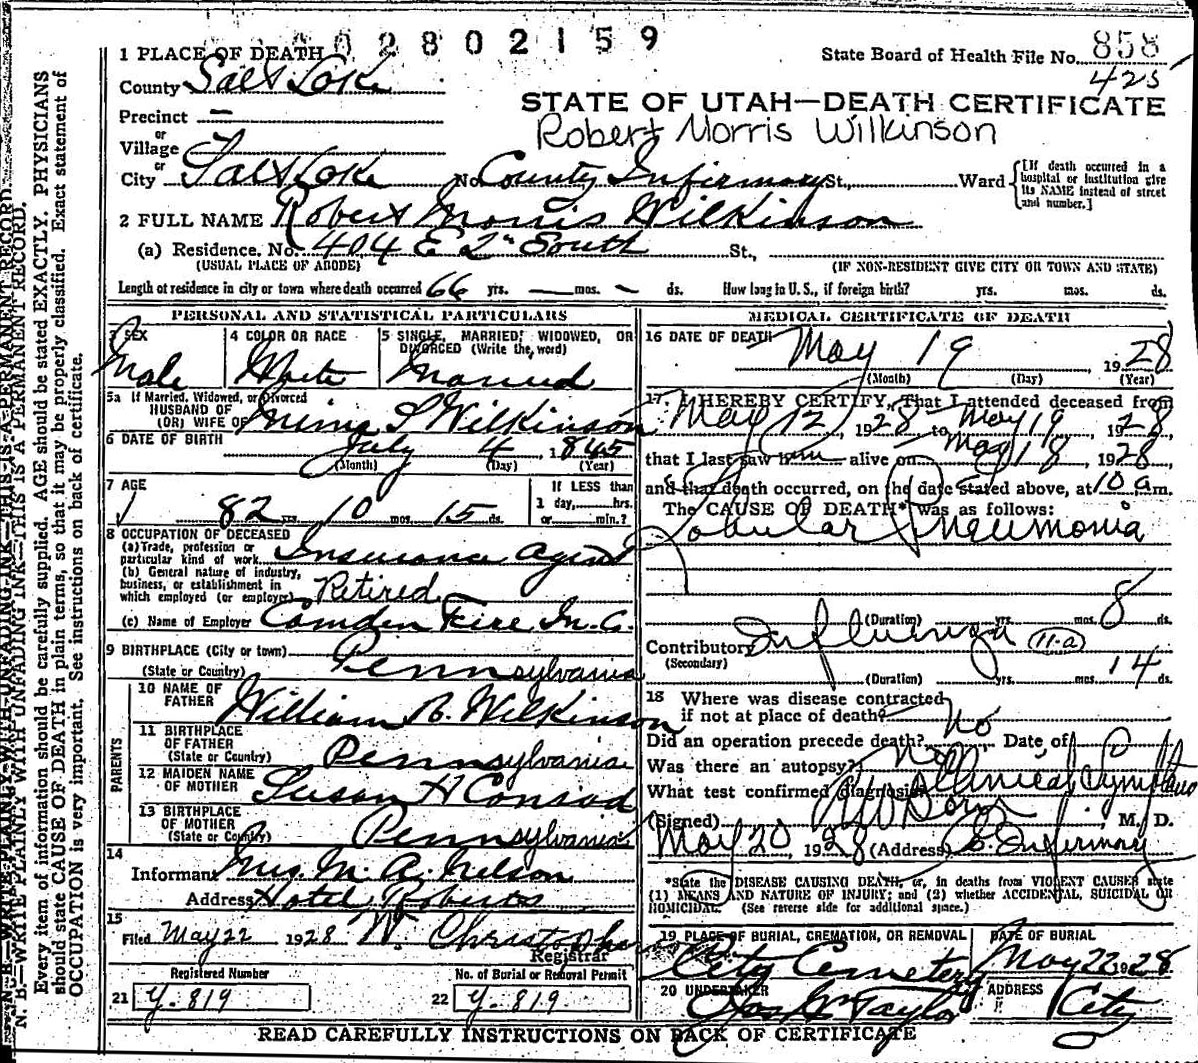 02802159
State Board of Health File No. 858
425
1 PLACE OF DEATH
County Salt Lake
STATE OF UTAH—DEATH CERTIFICATE
Precinct —
Robert Morris Wilkinson
or
Village
or
City Salt Lake No. County Infirmary St., Ward
[If death occurred in a hospital or institution give its NAME instead of street and number.]
2 FULL NAME Robert Morris Wilkinson
(a) Residence. No. 404 E 2" South St.,
(USUAL PLACE OF ABODE) (IF NON-RESIDENT GIVE CITY OR TOWN AND STATE)
Length of residence in city or town where death occurred 66 yrs. — mos. — ds. How long in U.S., if foreign birth? yrs. mos. ds.
PERSONAL AND STATISTICAL PARTICULARS
3 SEX 4 COLOR OR RACE 5 SINGLE, MARRIED, WIDOWED, OR DIVORCED (Write the word)
Male White Married
5a If Married, Widowed, or Divorced
HUSBAND OF
(OR) WIFE OF S Wilkinson
6 DATE OF BIRTH July 4 1845
(Month) (Day) (Year)
7 AGE If LESS than
1 day, hrs.
82 yrs. 10 mos. 15 ds. or min.?
8 OCCUPATION OF DECEASED
(a) Trade, profession or
particular kind of work Insurance Agent
(b) General nature of industry,
business, or establishment in
which employed (or employer) Retired
(c) Name of Employer Camden Fire In. C.
9 BIRTHPLACE (City or town)
(State or Country) Pennsylvania
PARENTS
10 NAME OF
FATHER William R. Wilkinson
11 BIRTHPLACE
OF FATHER
(State or Country) Pennsylvania
12 MAIDEN NAME
OF MOTHER Susan H Conrad
13 BIRTHPLACE
OF MOTHER
(State or Country) Pennsylvania
14
Informant Mrs. M. A. Nelson
Address Hotel Roberts
15
Filed May 22 1928 W. Christopher
Registrar
Registered Number No. of Burial or Removal Permit
21 Y-819 22 Y-819
MEDICAL CERTIFICATE OF DEATH
16 DATE OF DEATH May 19 1928
(Month) (Day) (Year)
17. I HEREBY CERTIFY, That I attended deceased from
May 12, 1928 to May 19 1928
that I last saw him alive on May 18, 1928,
and that death occurred, on the date stated above, at 10 a m.
The CAUSE OF DEATH* was as follows:
Lobular Pneumonia
(Duration) yrs. mos. 8 ds.
Contributory Influenza (11-a)
(Secondary) (Duration) yrs. mos. 14 ds.
18 Where was disease contracted
if not at place of death?
Did an operation precede death? No Date of
Was there an autopsy? No
What test confirmed diagnosis? Clinical Symptoms
(Signed) M. D.
May 20, 1928 (Address) C. Infirmary
*State the DISEASE CAUSING DEATH, or, in deaths from VIOLENT CAUSES state
(1) MEANS AND NATURE OF INJURY; and (2) whether ACCIDENTAL, SUICIDAL OR
HOMICIDAL. (See reverse side for additional space.)
19 PLACE OF BURIAL, CREMATION, OR REMOVAL DATE OF BURIAL
City Cemetery May 22 1928
20 UNDERTAKER ADDRESS
Jos Wm Taylor City
READ CAREFULLY INSTRUCTIONS ON BACK OF CERTIFICATE
N. B.—WRITE PLAINLY WITH UNFADING INK—THIS IS A PERMANENT RECORD.
N. B.—WRITE PLAINLY WITH UNFADING INK—THIS IS A PERMANENT RECORD.
Every item of information should be carefully supplied. AGE should be stated EXACTLY. PHYSICIANS
should state CAUSE OF DEATH in plain terms, so that it may be properly classified. Exact statement of
OCCUPATION is very important. See instructions on back of certificate.